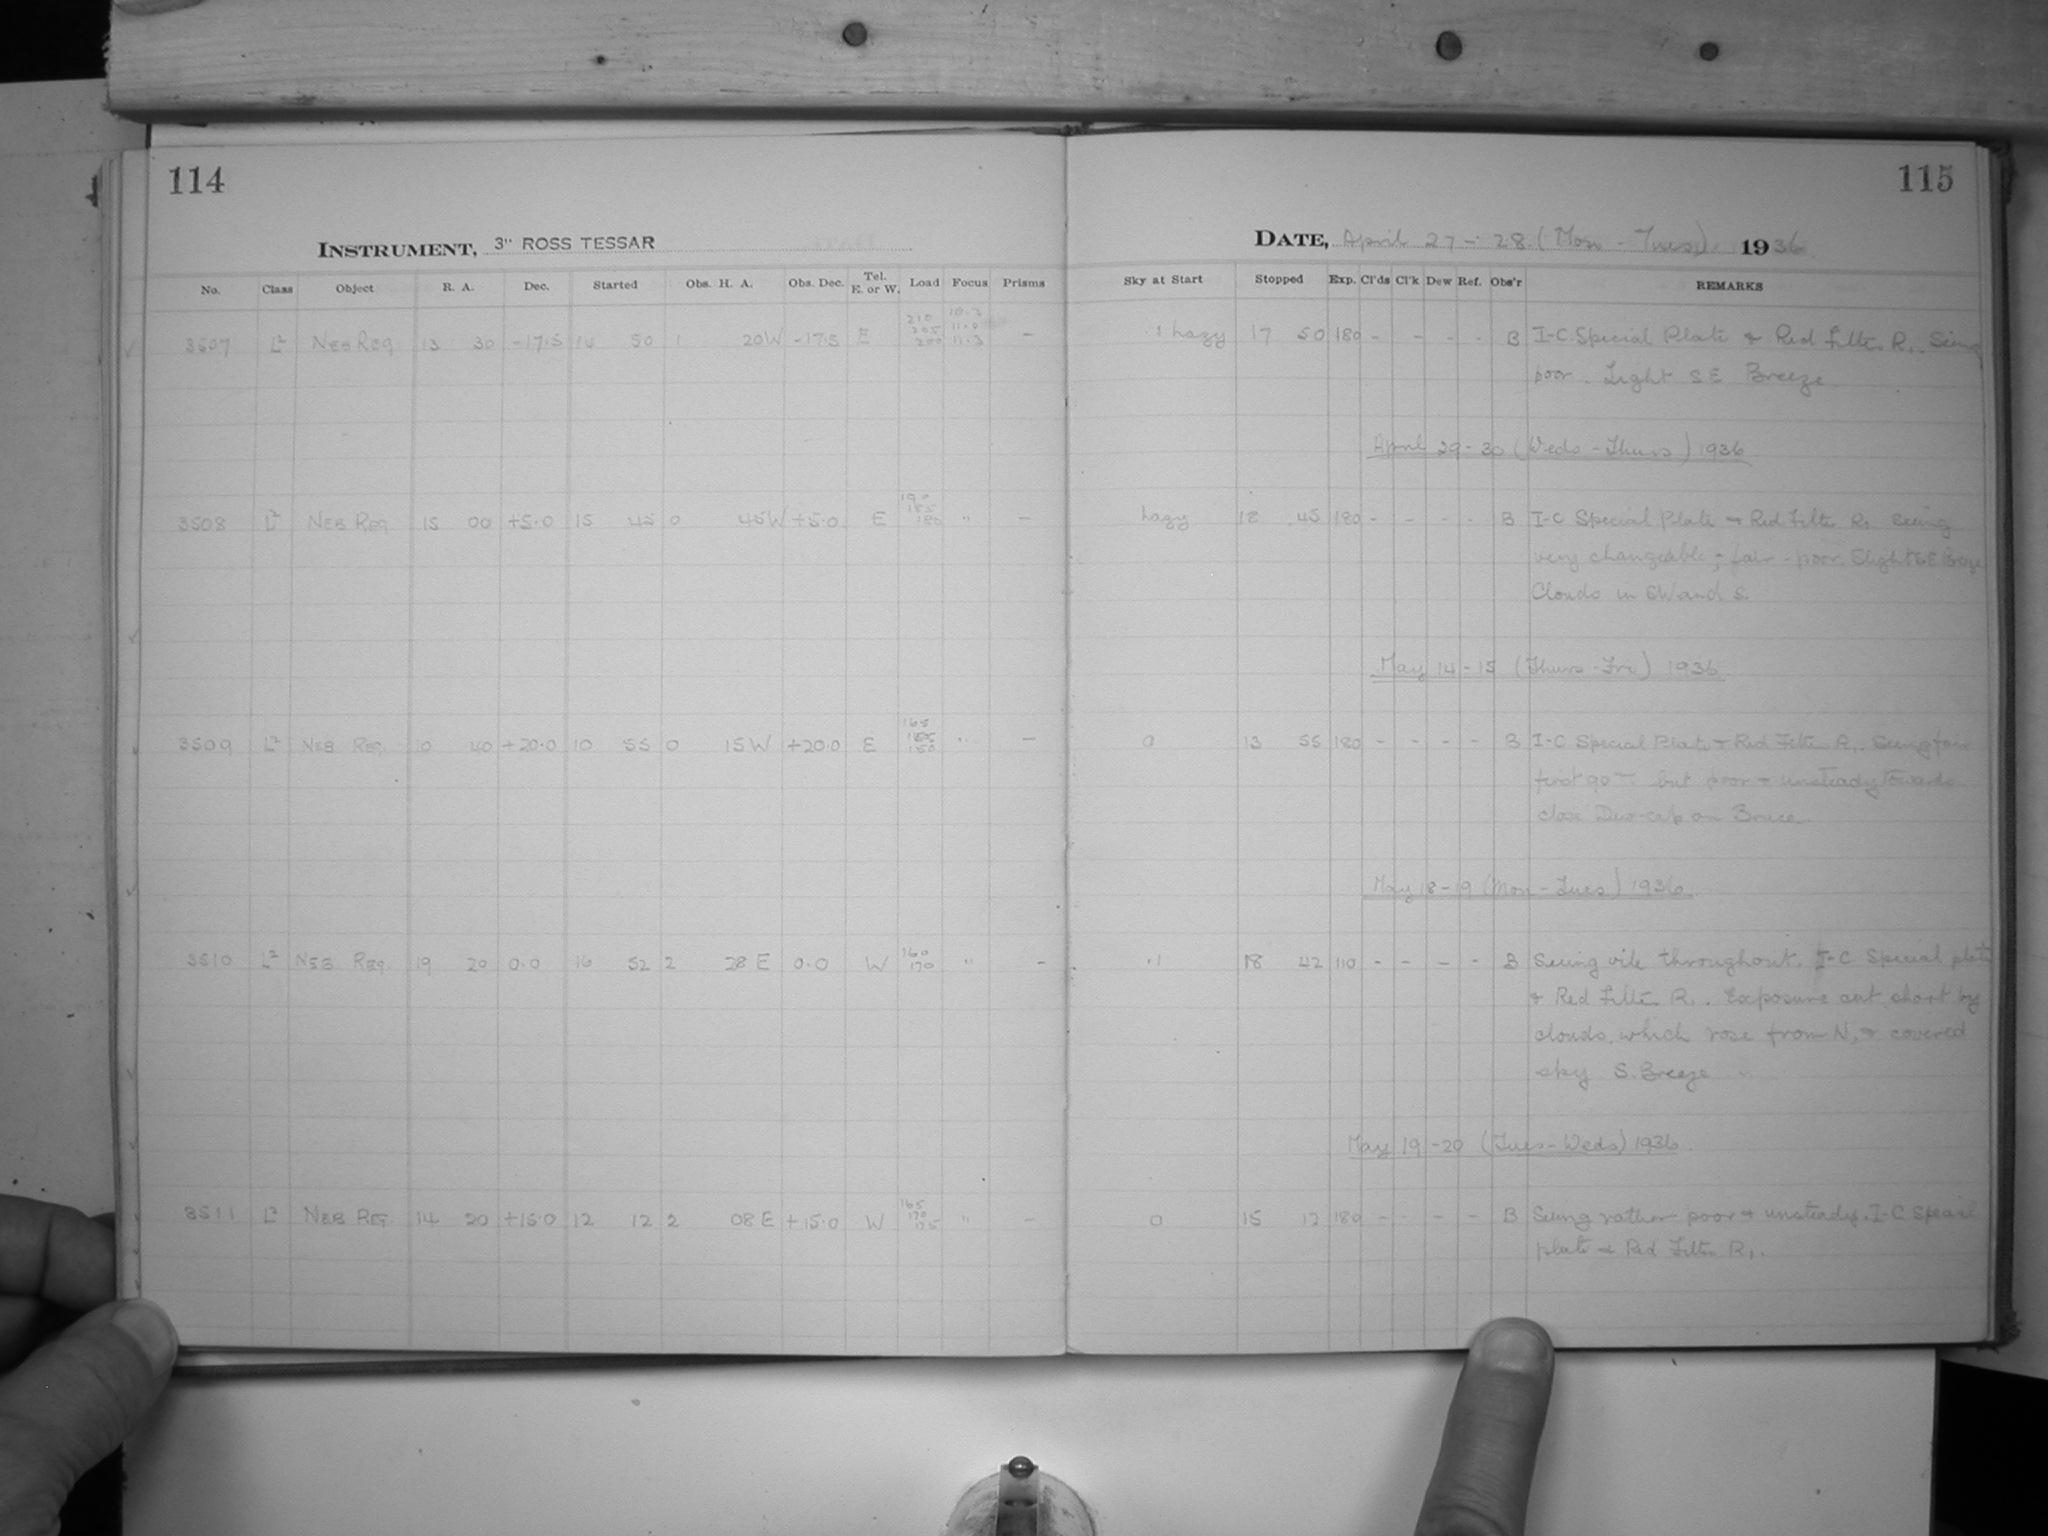 114
115
INSTRUMENT, 3" ROSS TESSAR
DATE, April 27 - 28 (Mon - Tues). 1936
No. Class Object R. A. Dec. Started Obs. H. A. Obs. Dec. Tel. E. or W. Load Focus Prisms Sky at Start Stopped Exp. Cl'ds Cl'k Dew Ref. Obs'r REMARKS
3507 L² NEB REG 13 30 -17.5 14 50 1 20W -17.5 E 210 205 200 11.0 11.3 - hazy 17 50 180 - - - - B I-C Special Plate & Red Filter R₁. Seeing
poor. Light SE Breeze
April 29-30 (Weds - Thurs) 1936
3508 L² NEB REG 15 00 +5.0 15 45 0 45W +5.0 E 190 185 180 " - hazy 18 45 180 - - - - B I-C Special Plate & Red Filter R₁ Seeing
very changeable; fair - poor. Slight SE Breeze
Clouds in SW and S.
May 14-15 (Thurs - Fri) 1936
3509 L² NEB REG 10 40 +20.0 10 55 0 15W +20.0 E 165 155 150 " - 0 13 55 180 - - - - B I-C Special Plate & Red Filter R₁. Seeing fair
first 90ᵐ but poor & unsteady towards
close Dew-cap on Bruce
May 18-19 (Mon - Tues) 1936
3510 L² NEB REG 19 20 0.0 16 52 2 28E 0.0 W 160 170 " - .1 18 42 110 - - - - B Seeing vile throughout. I-C Special plate
& Red Filter R₁. Exposure cut short by
clouds, which rose from N, & covered
sky S. Breeze
May 19-20 (Tues-Weds) 1936
3511 L² NEB REG 14 20 +15.0 12 12 2 08E +15.0 W 165 170 175 " - 0 15 12 180 - - - - B Seeing rather poor & unsteady. I-C Special
plate & Red Filter R₁.